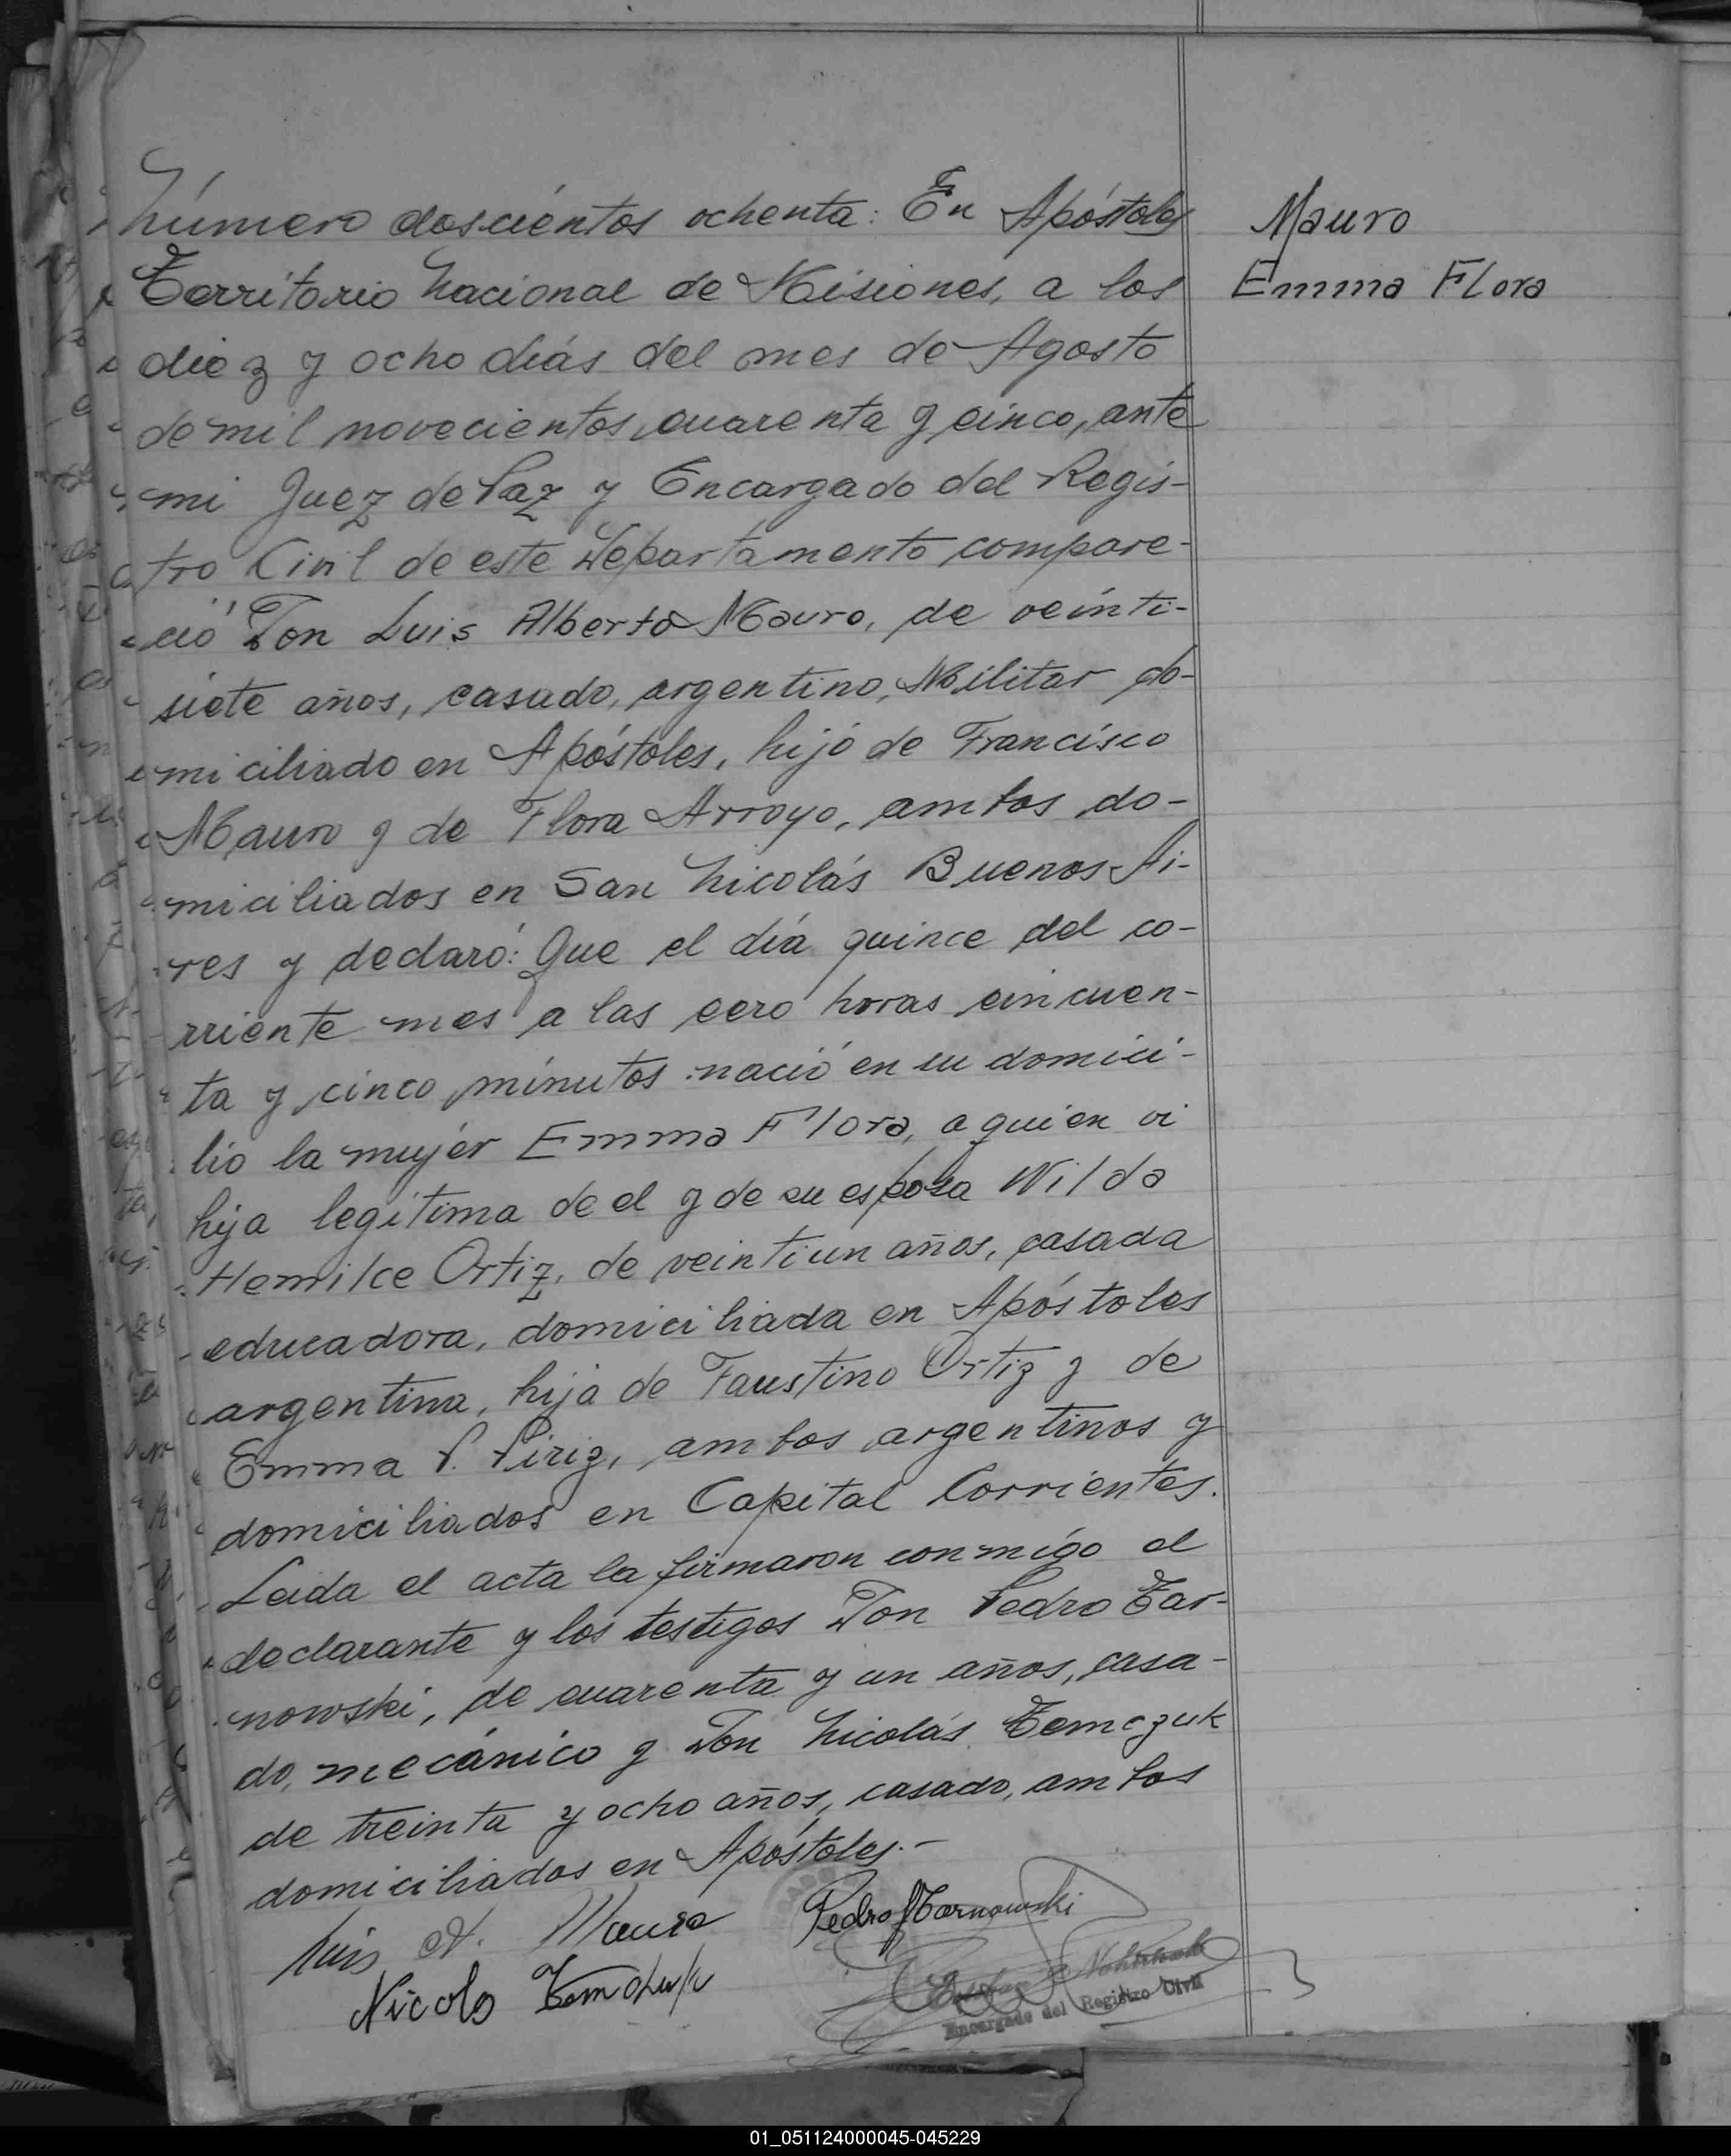 Número doscientos ochenta: En Apóstoles
Mauro
Territorio Nacional de Misiones, a los
Emma Flora
diez y ocho días del mes de Agosto
de mil novecientos cuarenta y cinco, ante
mi Juez de Paz y Encargado del Regis-
tro Civil de este Departamento compare-
ció Don Luis Alberto Mauro, de veinti-
siete años, casado, argentino, Militar do-
miciliado en Apóstoles, hijo de Francisco
Mauro y de Flora Arroyo, ambos do-
miciliados en San Nicolás Buenos Ai-
res y declaró: Que el día quince del co-
rriente mes a las cero horas cincuen-
ta y cinco minutos nació en su domici-
lio la mujer Emma Flora, a quien vi
hija legítima de el y de su esposa Wilda
Hemilce Ortiz, de veintiun años, casada
educadora, domiciliada en Apóstoles
argentina, hija de Faustino Ortiz y de
Emma P. Piriz, ambos argentinos y
domiciliados en Capital Corrientes.
Leida el acta la firmaron conmigo el
declarante y los testigos Don Pedro Tar-
nowski, de cuarenta y un años, casa-
do, mecánico y Don Nicolás Temczuk
de treinta y ocho años, casado, ambos
domiciliados en Apóstoles.-
Luis A. Mauro
Pedro Tarnowski
Nicolo
Encargado del Registro Civil
01_051124000045-045229